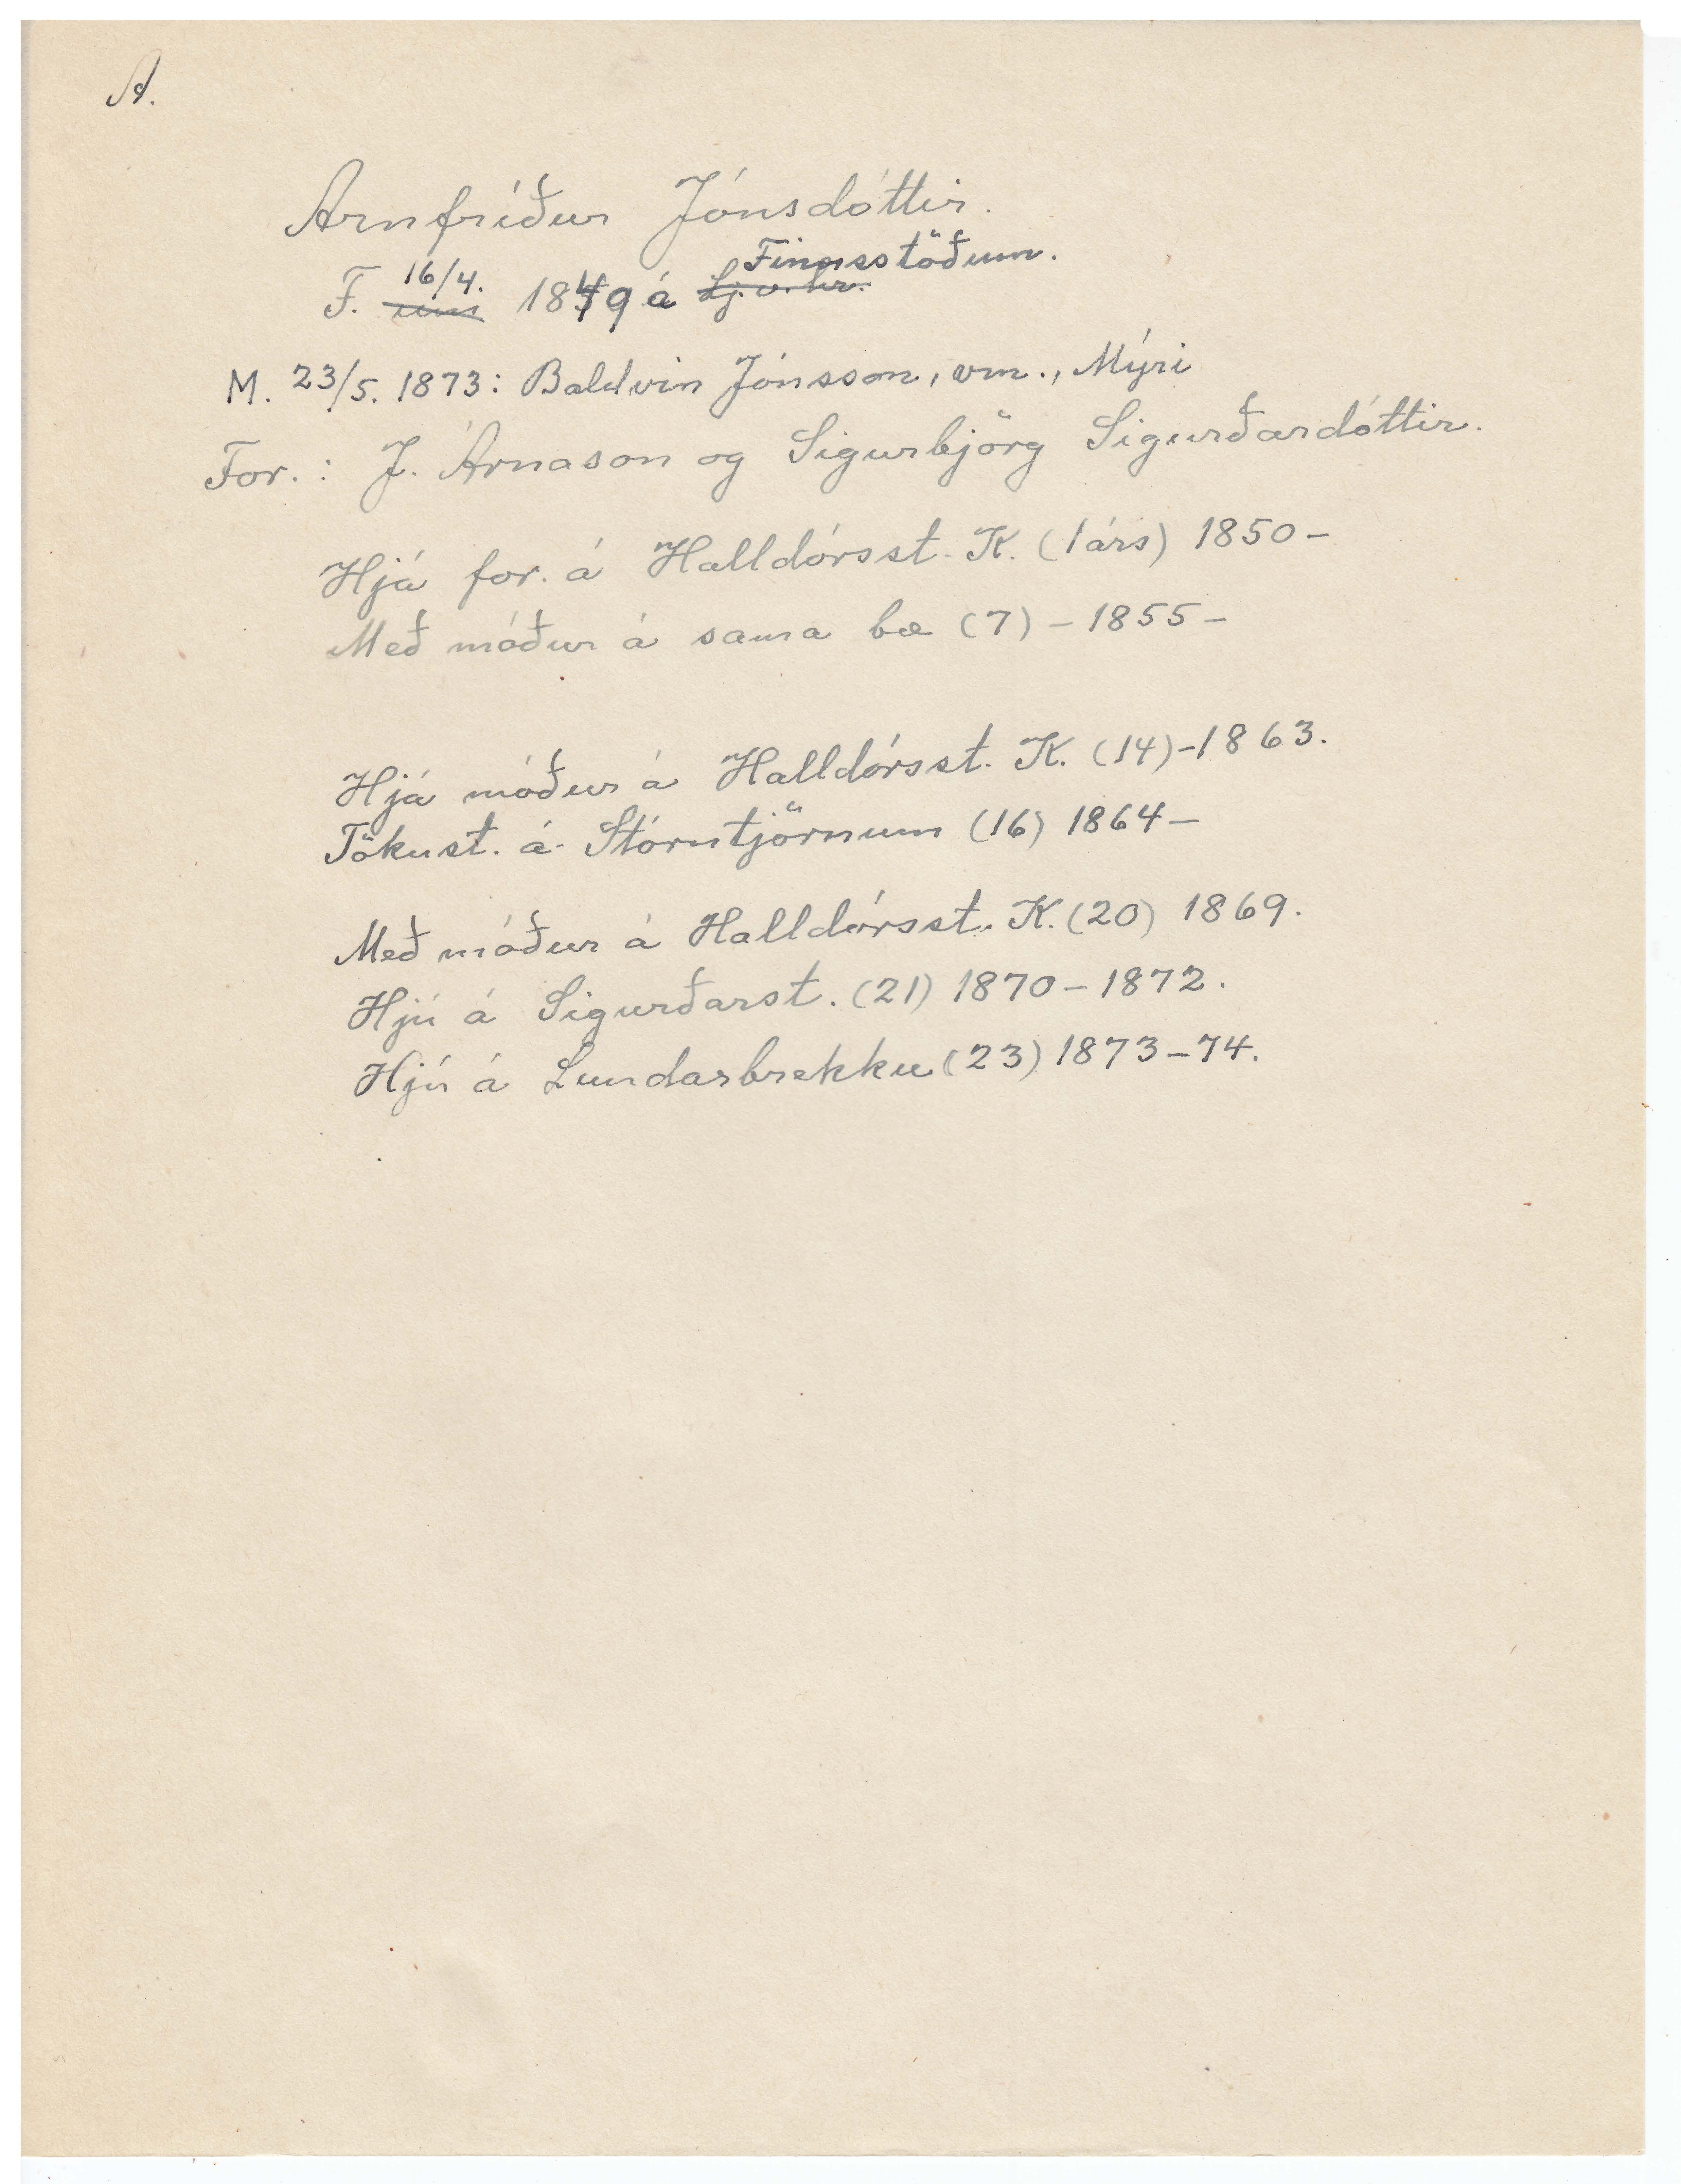 A.
Arnfríður Jónsdóttir.
Finnsstöðum.
F. 16/4. um 1849 á Lj.v.hr.
M. 23/5. 1873: Baldvin Jónsson, vm., Mýri
For.: J. Árnason og Sigurbjörg Sigurðardóttir.
Hjá for. á Halldórsst. K. (1 árs) 1850-
Með móður á sama bæ (7) - 1855 -
Hjá móður á Halldórsst. K. (14) - 1863.
Tökust. á Stórutjörnum (16) 1864-
Með móður á Halldórsst. K. (20) 1869.
Hjú á Sigurðarst. (21) 1870-1872.
Hjú á Lundarbrekku (23) 1873-74.